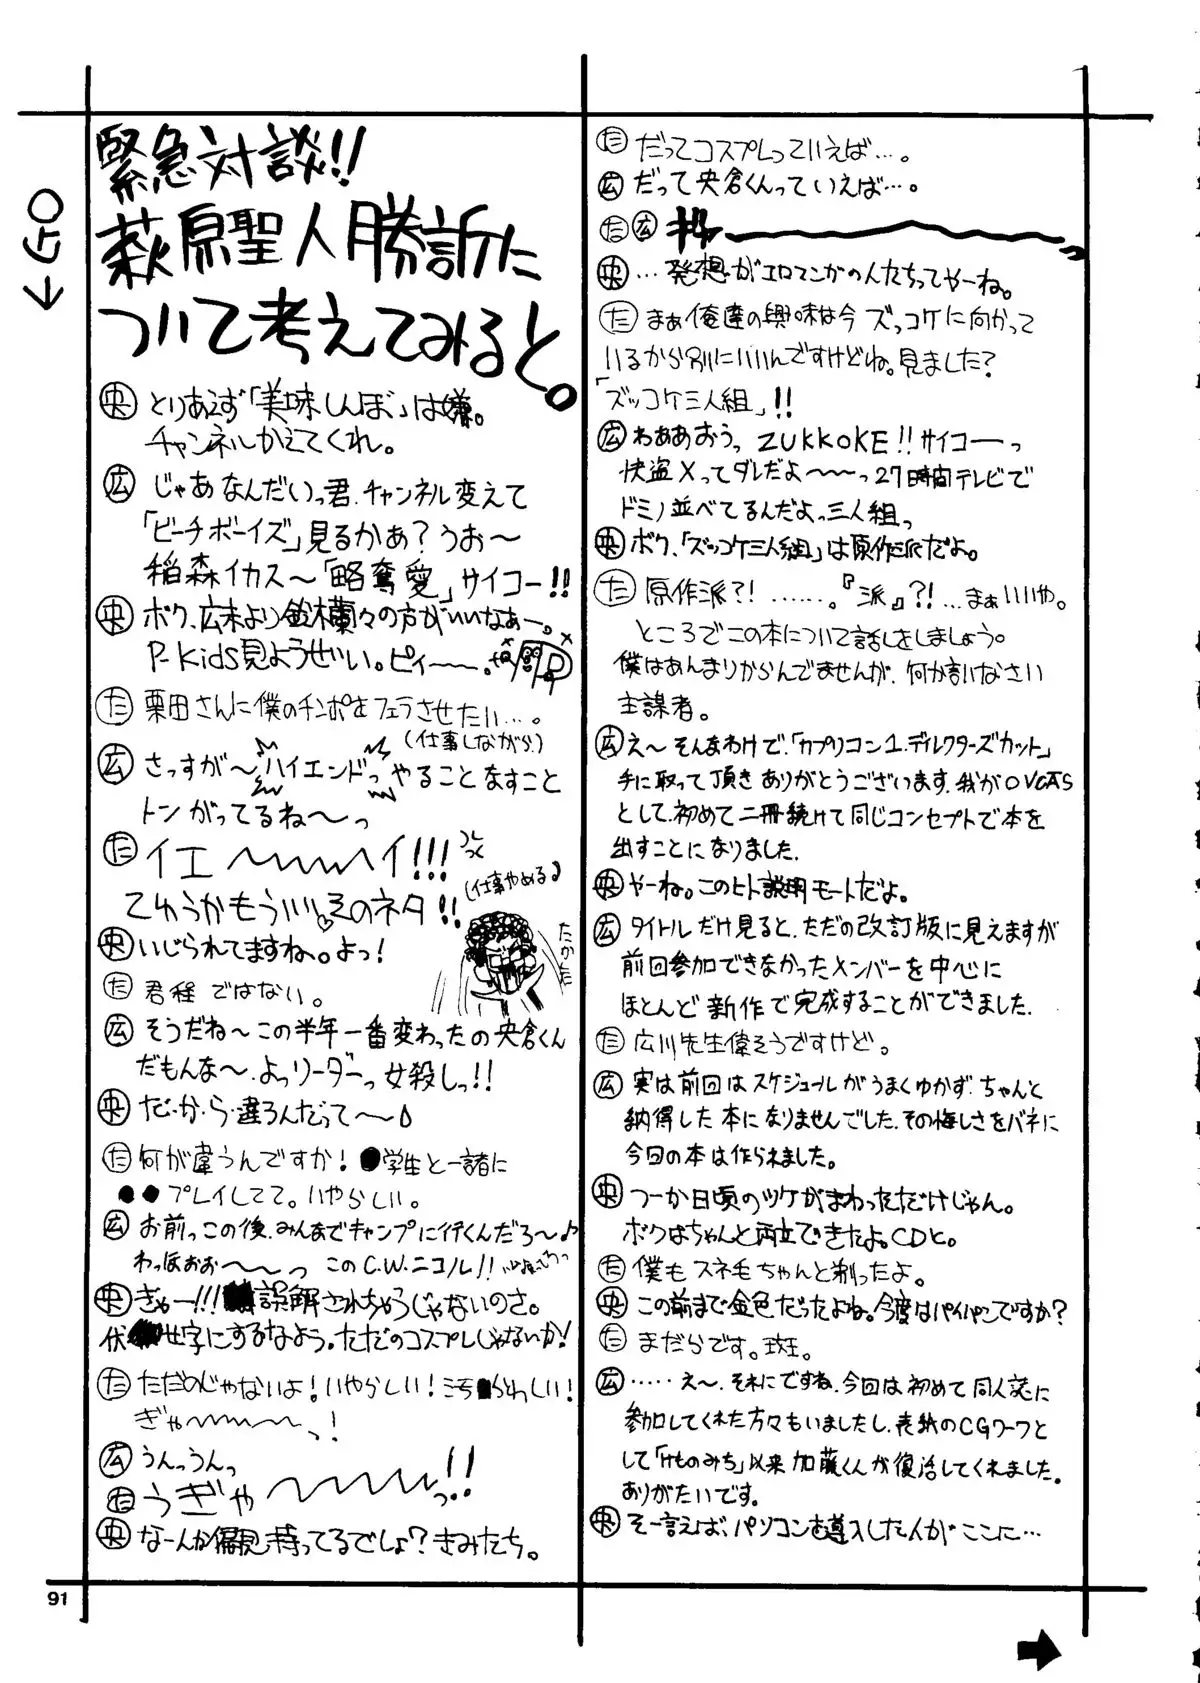 ←GO
緊急対談!!
萩原聖人勝訴に
ついて考えてみると。
央 とりあえず「美味しんぼ」は嫌。
チャンネルかえてくれ。
広 じゃあなんだいっ君、チャンネル変えて
「ビーチボーイズ」見るかぁ？うお〜
稲森イカス〜「略奪愛」サイコー!!
央 ボク、広末より鈴木蘭々の方がいいなぁー。
P-Kids見ようぜい。ピィ〜〜。
た 栗田さんに僕のチンポをフェラさせたい…。
(仕事しながら)
広 さっすが〜ハイエンドっやることなすこと
トンがってるね〜っ
た イエ〜〜〜イ!!!
てゅうかもういいよそのネタ!!
(仕事やめる)
たかた
央 いじられてますね。よっ!
た 君程ではない。
広 そうだね〜この半年一番変わったの央倉くん
だもんな〜、よっリーダーっ女殺しっ!!
央 だ・か・ら・違ろんだって〜♪
た 何が違うんですか!●学生と一諸に
●●プレイしてて。いやらしい。
広 お前っこの後、みんなでキャンプに行くんだろ〜♪
わっほぉぉ〜〜っ このC.W.ニコル!!
央 ぎゃー!!!誤解されちゃうじゃないのさ。
伏せ字にするなよう。ただのコスプレじゃないか!
た ただのじゃないよ!いやらしい!
ぎゃ〜〜〜っ!
広 うんっうんっ
た うぎゃ〜〜〜っ!!
央 なーんか偏見持ってるでしょ？きみたち。
91
た だってコスプレっていえば…。
広 だって央倉くんっていえば…。
た 広 ギャーーーっ
央 …発想がエロマンガの人たちってやーね。
た まぁ俺達の興味は今ズッコケに向かって
いるから別にいいんですけどね。見ました？
「ズッコケ三人組」!!
広 わあぁおうっ ZUKKOKE!!サイコーっ
快盗Xってダレだよーーっ27時間テレビで
ドミノ並べてるんだよっ三人組っ
央 ボク、「ズッコケ三人組」は原作派だよ。
た 原作派?!……。『派』?!…まぁいいや。
ところでこの本について話しをしましょう。
僕はあんまりからんでませんが、何か言いなさい
主謀者。
広 え〜そんなわけで、「カプリコン1.ディレクターズカット」
手に取って頂きありがとうございます。我がOVCASS
として、初めて二冊続けて同じコンセプトで本を
出すことになりました。
央 やーね。このヒト説明モードだよ。
広 タイトルだけ見ると、ただの改訂版に見えますが
前回参加できなかったメンバーを中心に
ほとんど新作で完成することができました。
た 広川先生偉そうですけど。
広 実は前回はスケジュールがうまくゆかず、ちゃんと
納得した本になりませんでした。その悔しさをバネに
今回の本は作られました。
央 つーか日頃のツケがまわっただけじゃん。
ボクはちゃんと両立できたよ。CDと。
た 僕もスネ毛ちゃんと剃ったよ。
央 この前まで金色だったよね。今度はパイパンですか？
た まだらです。斑。
広 ……え〜、それにですね、今回は初めて同人誌に
参加してくれた方々もいましたし、表紙のCGワークと
して「けものみち」以来加藤くんが復活してくれました。
ありがたいです。
央 そー言えば、パソコンを導入した人がここに…